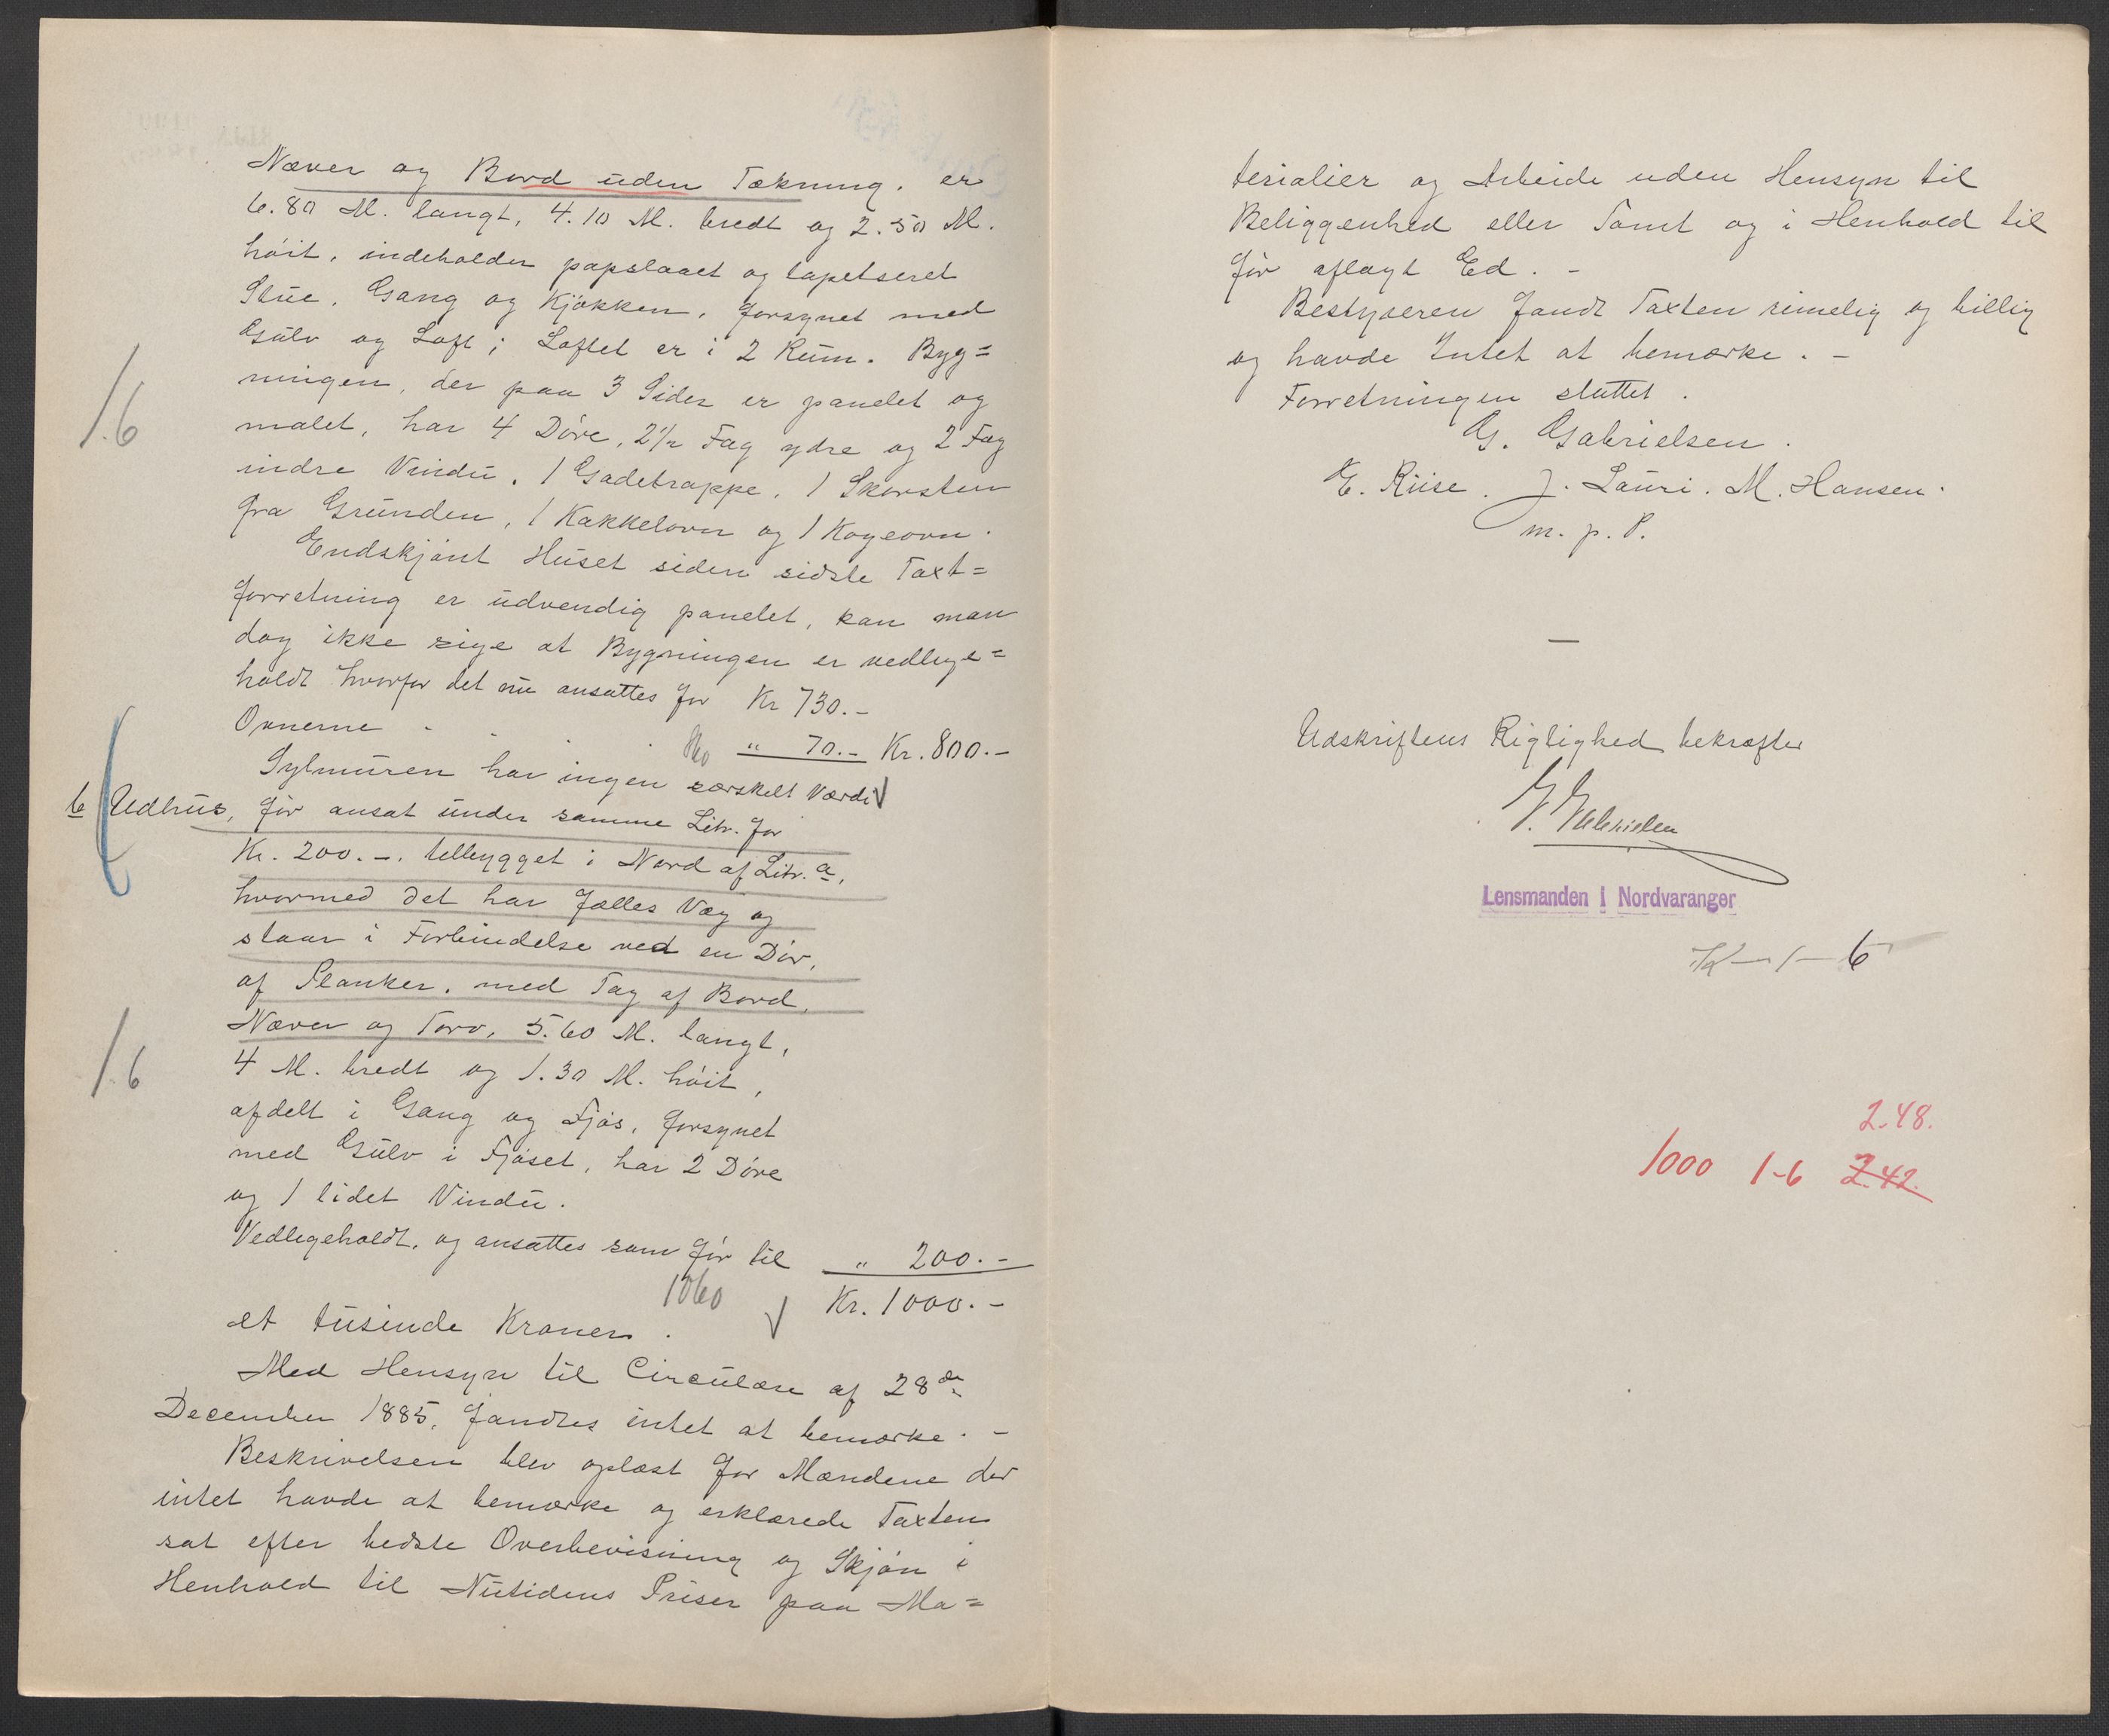 Næver og Bord uden Tækning. er
6.80 M. langt, 4.10 M. bredt og 2.50 M.
høit, indeholder papslaaet og tapetseret
Stue, Gang og Kjøkken, forsynet med
Gulv og Loft; Loftet er i 2 Rum. Byg=
ningen, der paa 3 Sider er panelet og
1.6
malet, har 4 Døre, 2½ Fag ydre og 2 Fag
indre Vindu, 1 Gadetrappe, 1 Skorsten
fra Grunden, 1 Kakkelovn og 1 Kogeovn.
Endskjønt Huset siden sidste Taxt=
forretning er udvendig panelet, kan man
dog ikke sige at Bygningen er vedlige=
holdt hvorfor det nu ansattes for Kr 730.-
Ovnerne . . . . " 70.- Kr. 800.-
Sylmuren har ingen særskelt Værdi
b Udhus, før ansat under samme Litr. for
Kr. 200.-. tilbygget i Nord af Litr. a,
hvormed det har fælles Væg og
staar i Forbindelse ved en Dør,
af Planker, med Tag af Bord,
Næver og Torv, 5.60 M. langt,
1.6
4 M. bredt og 1.30 M. høit,
afdelt i Gang og Fjøs, forsynet
med Gulv i Fjøset, har 2 Døre
og 1 lidet Vindu.
Vedligeholdt, og ansattes som før til " 200.-
1060 Kr. 1000.-
et tusinde Kroner.
Med Hensyn til Circulære af 28de
December 1885, fandtes intet at bemærke. -
Beskrivelsen blev oplæst for Mændene der
intet havde at bemærke og erklærede Taxten
sat efter bedste Overbevisning og Skjøn i
Henhold til Nutidens Priser paa Ma=
terialier og Arbeide uden Hensyn til
Beliggenhed eller Tomt og i Henhold til
før aflagt Ed. -
Bestyreren fandt Taxten rimelig og billig
og havde Intet at bemærke. -
Forretningen sluttet.
G. Gabrielsen.
E. Riise. J. Lauri. M. Hansen.
m. p. P.
—
Udskriftens Rigtighed bekræfter
G. Gabrielsen
Lensmanden i Nordvaranger
K-1-6
2.48.
1000 1-6 2.42.